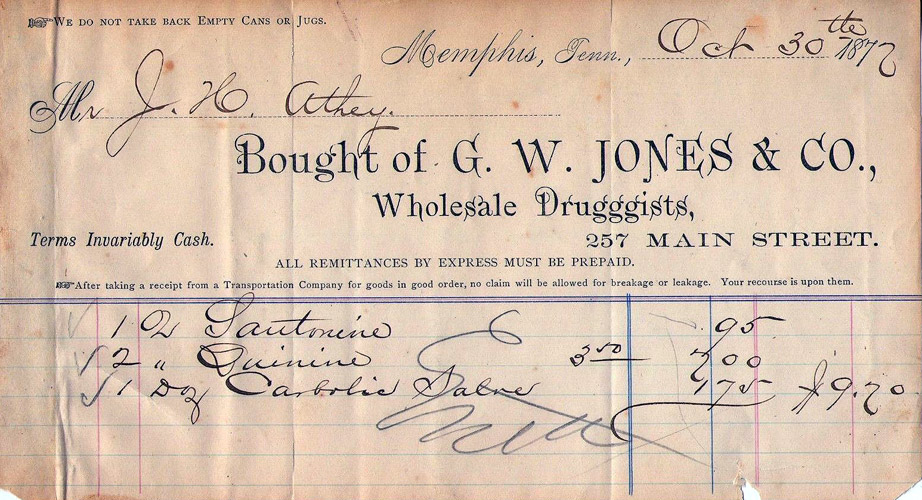 We do not take back Empty Cans or Jugs.
Memphis, Tenn., Oct 30th 1877
Mr J. H. Athey.
Bought of G. W. JONES & CO.,
Wholesale Drugggists,
Terms Invariably Cash. 257 MAIN STREET.
ALL REMITTANCES BY EXPRESS MUST BE PREPAID.
After taking a receipt from a Transportation Company for goods in good order, no claim will be allowed for breakage or leakage. Your recourse is upon them.
1 Santonine 95
2 " Quinine 3 50 7 00
1 Doz Carbolic Salve 1 75 $9.70